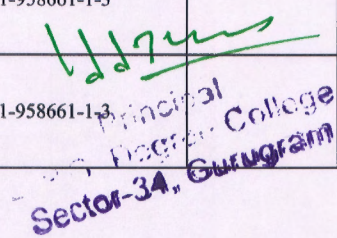 1-958661-1-3
1-958661-1-3
Principal
Degree College
Sector-34, Gurugram